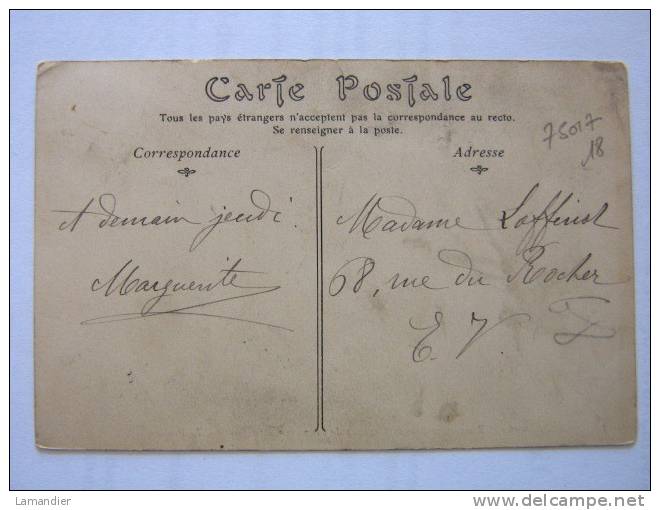 Carte Postale
Tous les pays étrangers n'acceptent pas la correspondance au recto.
Se renseigner à la poste.
Correspondance
A demain jeudi.
Marguerite
Adresse
75017
18
Madame
68, rue du Rocher
E. V.
Lamandier
delcampe.net